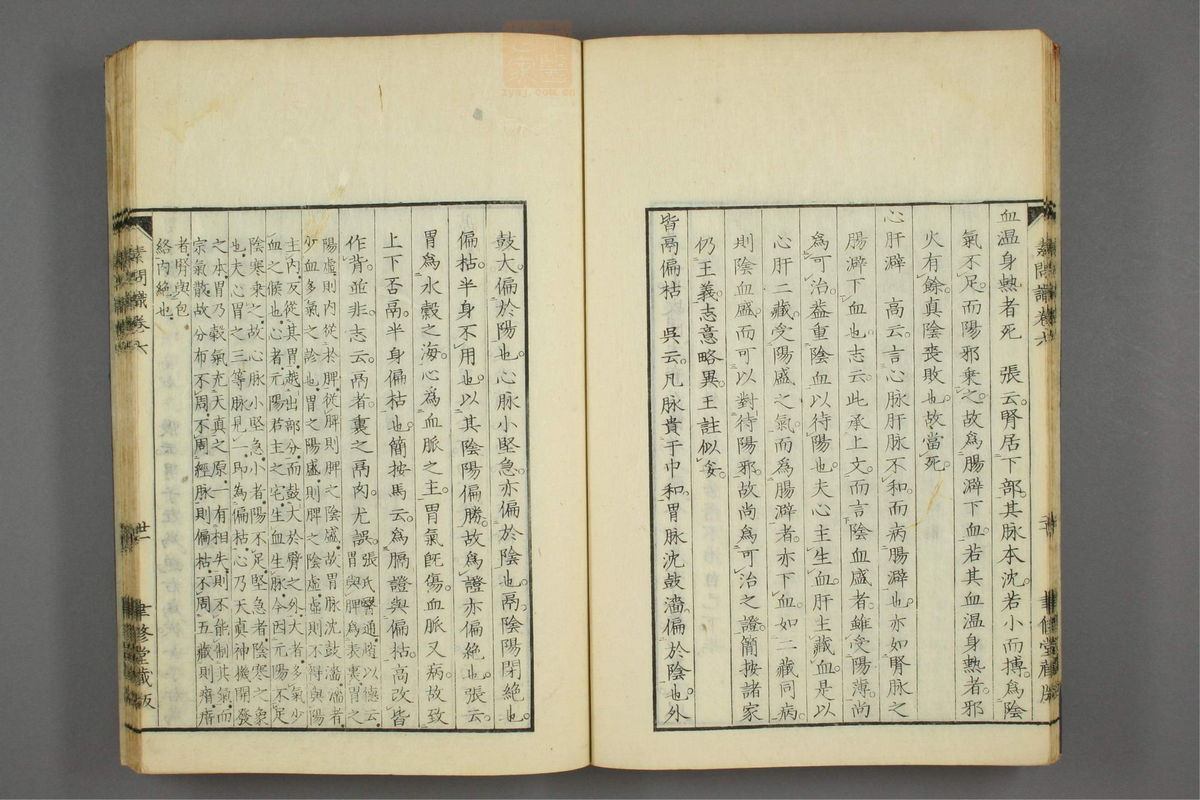 血温身熱者死　張云腎居下部其脉本沈若小而搏為陰
氣不足而陽邪乗之故為腸澼下血若其血温身熱者邪
火有餘真陰喪敗也故當死
心肝澼　高云言心脉肝脉不和而病腸澼也亦如腎脉之
腸澼下血也志云此承上文而言陰血盛者雖受陽薄尚
為可治葢重陰血以待陽也夫心主生血肝主藏血是以
心肝二藏受陽盛之氣而為腸澼者亦下血如二藏同病
則陰血盛而可以對待陽邪故尚為可治之證簡按諸家
仍王義志意略異王註似妥
皆鬲偏枯　吳云凡脉貴于中和胃脉沈鼓濇偏於陰也外
鼓大偏於陽也心脉小堅急亦偏於陰也鬲陰陽閉絶也
偏枯半身不用也以其陰陽偏勝故為證亦偏絶也張云
胃為水穀之海心為血脈之主胃氣旣傷血脈又病故致
上下否鬲半身偏枯也簡按馬云為膈證與偏枯高改皆
作背並非志云鬲者裏之鬲肉尤誤張氏醫通趙以德云
胃與脾為表裏胃之
陽虛則内從於脾從脾則脾之陰盛故胃脈沈鼓濇濇者
少血多氣之診也胃之陽盛則脾之陰虛虛則不得與陽
主内反從其胃越出部分而鼓大於臂之外大者多氣少
血之候也心者元陽君主之宅生血生脉今因元陽不足
陰寒乘之故心脉小堅急小者陽不足堅急者陰寒之象
也夫心胃之三等脉見一即為偏枯心乃天眞神機開發
之本胃乃穀氣充天真之原一有相失則不能制其氣而
宗氣散故分布不周不周經脉則偏枯不周五藏則瘖瘖
者腎與包
絡内絶也
素問識卷六
聿修堂藏版
素問識卷六
丗一
聿修堂藏版